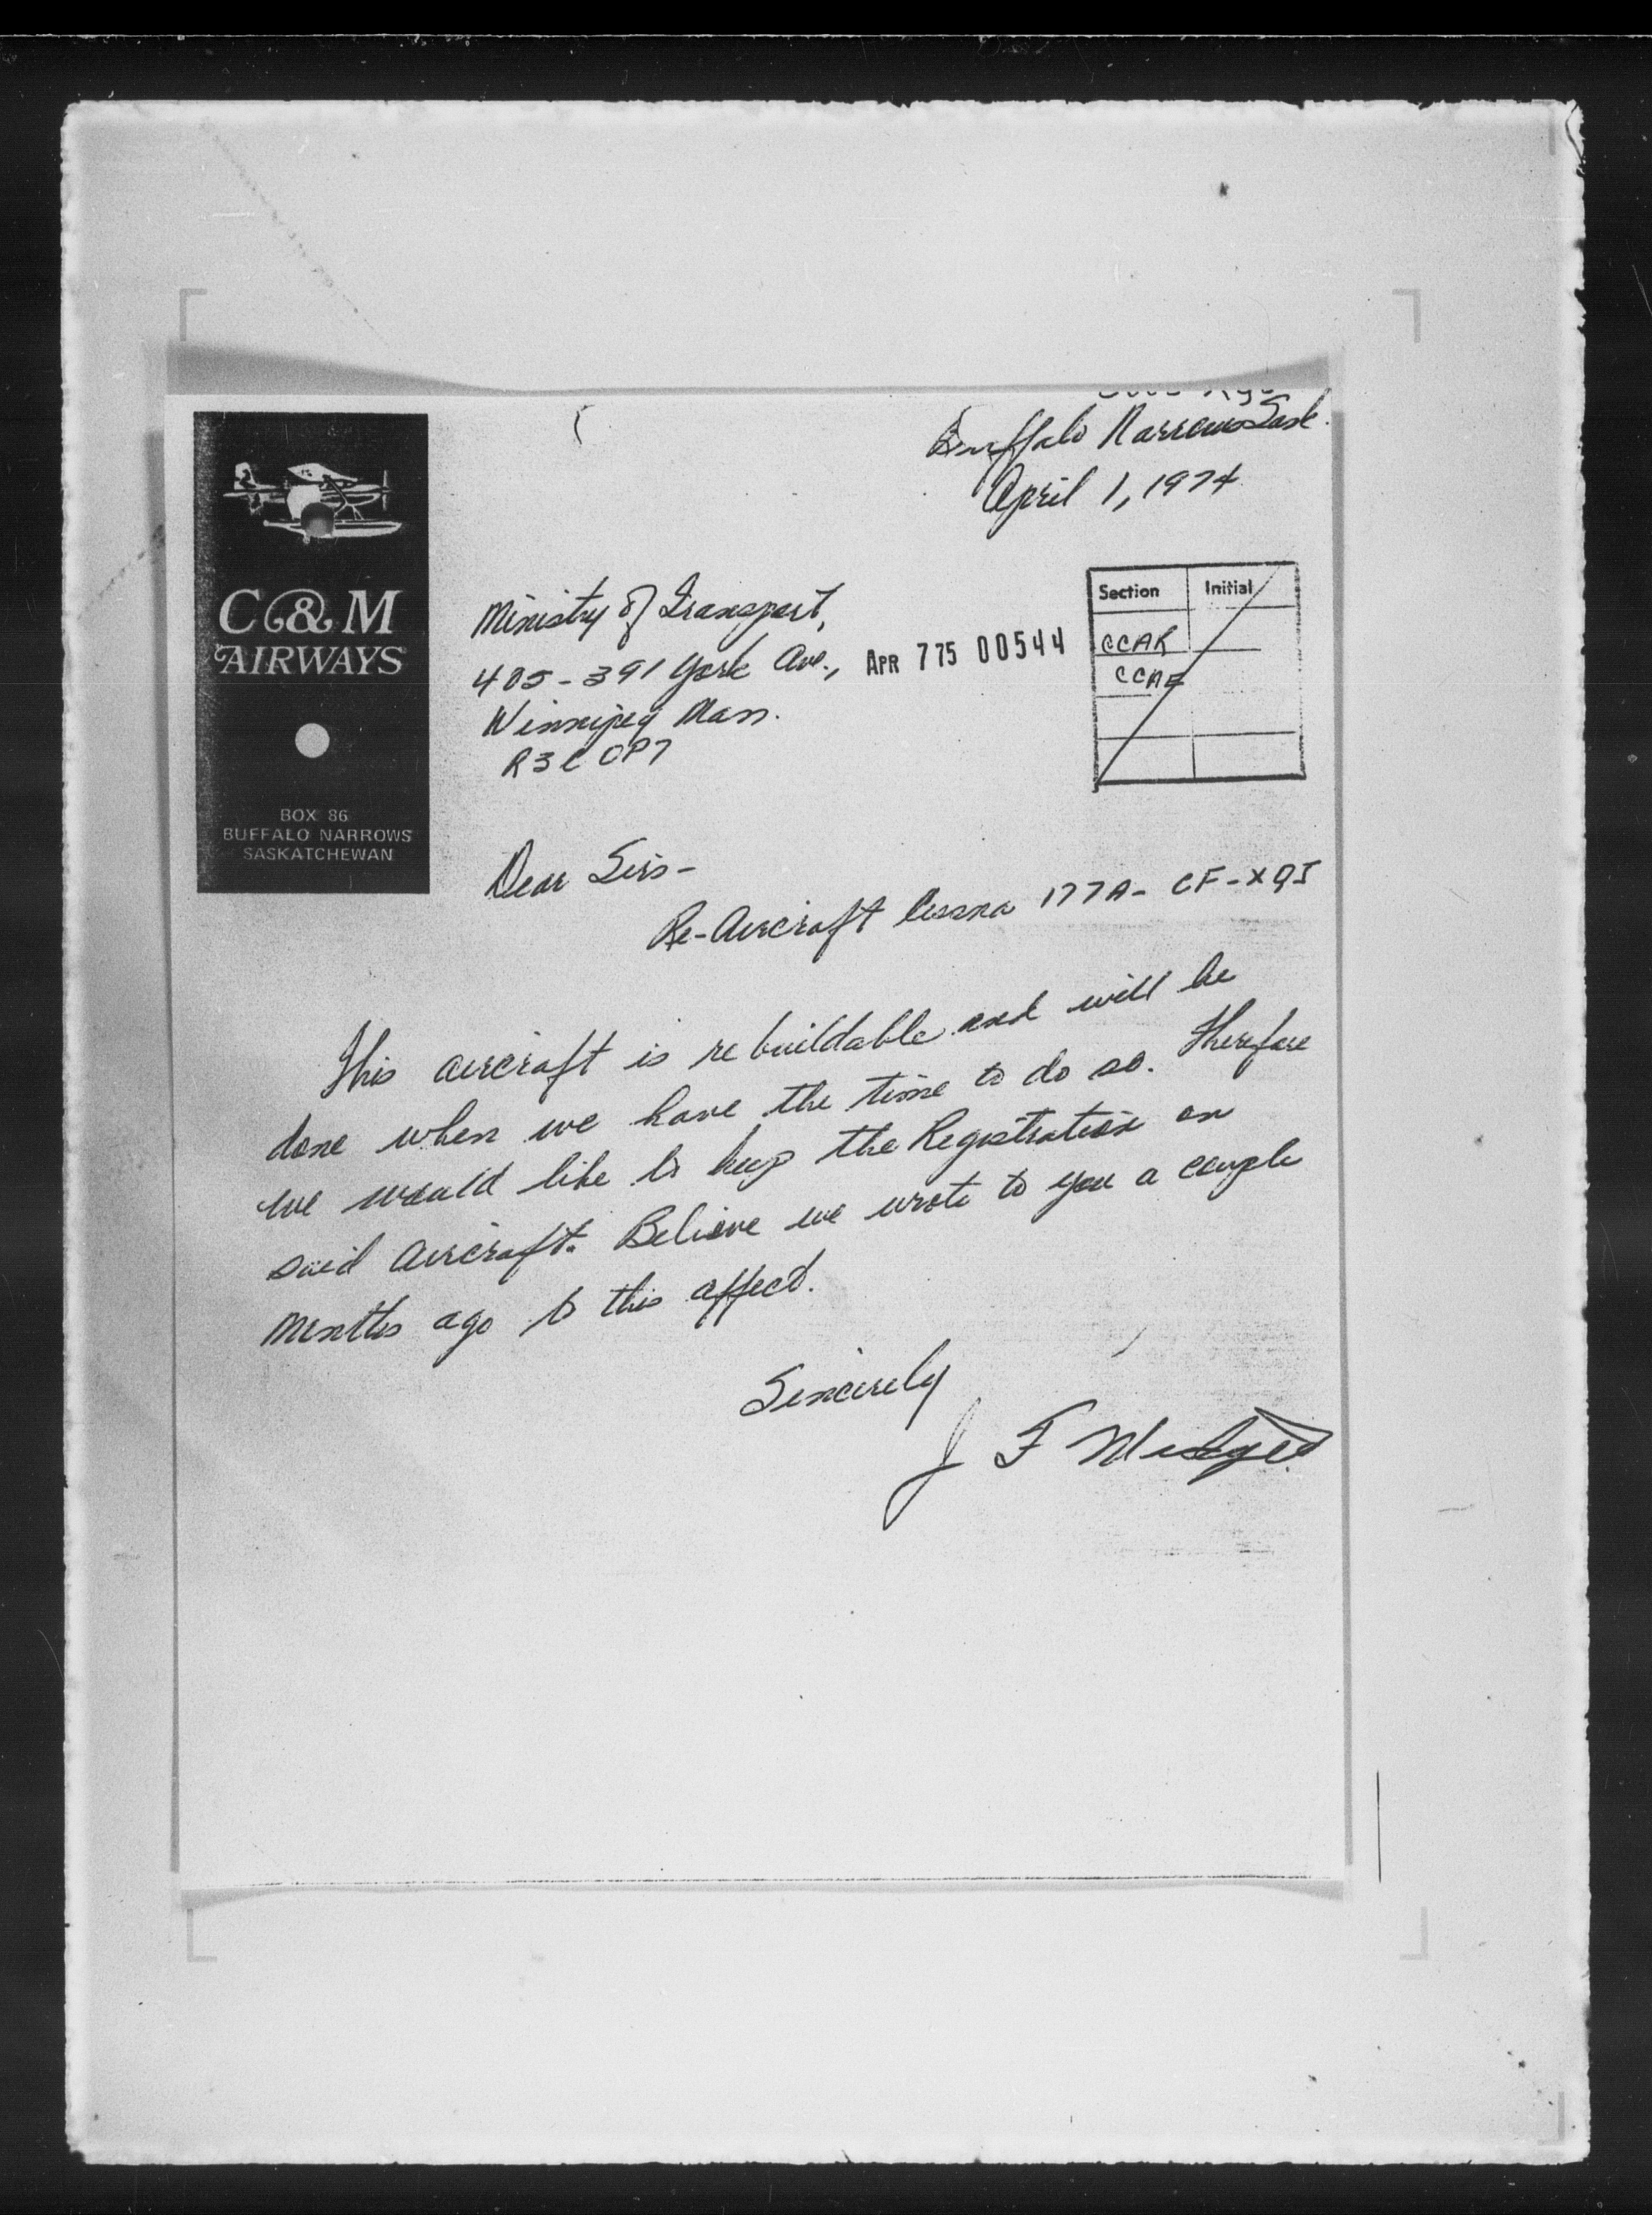 Buffalo Narrows Sask.
April 1, 1974
C&M
AIRWAYS
BOX 86
BUFFALO NARROWS
SASKATCHEWAN
Ministry of Transport,
405-391 York Ave.,
Winnipeg Man.
R3C 0P7
APR 7 75 00544
Section Initial
CCAR
CCAE
Dear Sirs-
Re-Aircraft Cessna 177A- CF-XQI
This aircraft is rebuildable and will be
done when we have the time to do so. Therefore
we would like to keep the Registration on
said Aircraft. Believe we wrote to you a couple
months ago to this affect.
Sincerely
J F